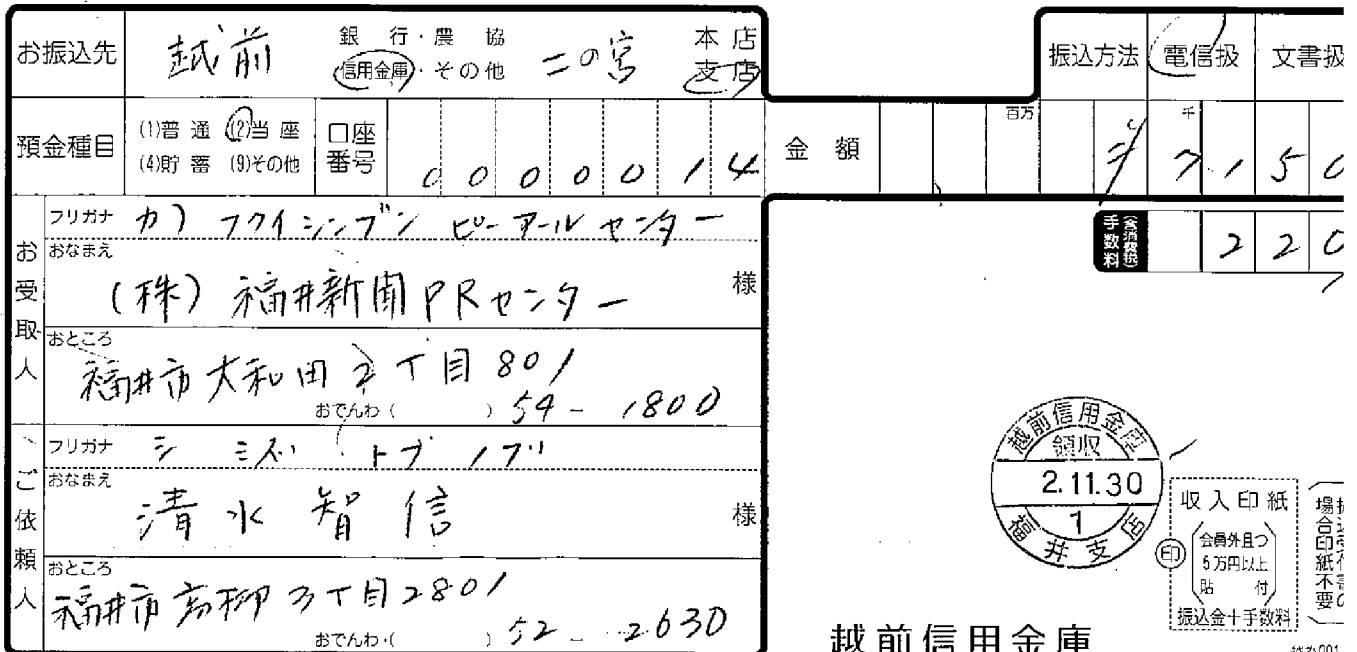 お振込先 越前 銀行・農協 信用金庫・その他 二の宮 本店 支店 振込方法 電信扱 文書扱
預金種目 (1)普通 (2)当座 (4)貯蓄 (9)その他 口座番号 0000014 金額 百万 千 ¥7150
手数料 (含消費税) 220
お受取人
フリガナ カ)フクイシンブンピーアールセンター
おなまえ (株)福井新聞PRセンター 様
おところ 福井市大和田2丁目801
おでんわ( ) 54-1800
ご依頼人
フリガナ シミズ トモノブ
おなまえ 清水智信 様
おところ 福井市高柳3丁目2801
おでんわ・( ) 52-2630
越前信用金庫
領収
2.11.30
1
福井支店
収入印紙
印
会員外且つ
5万円以上
貼付
振込金+手数料
越前信用金庫